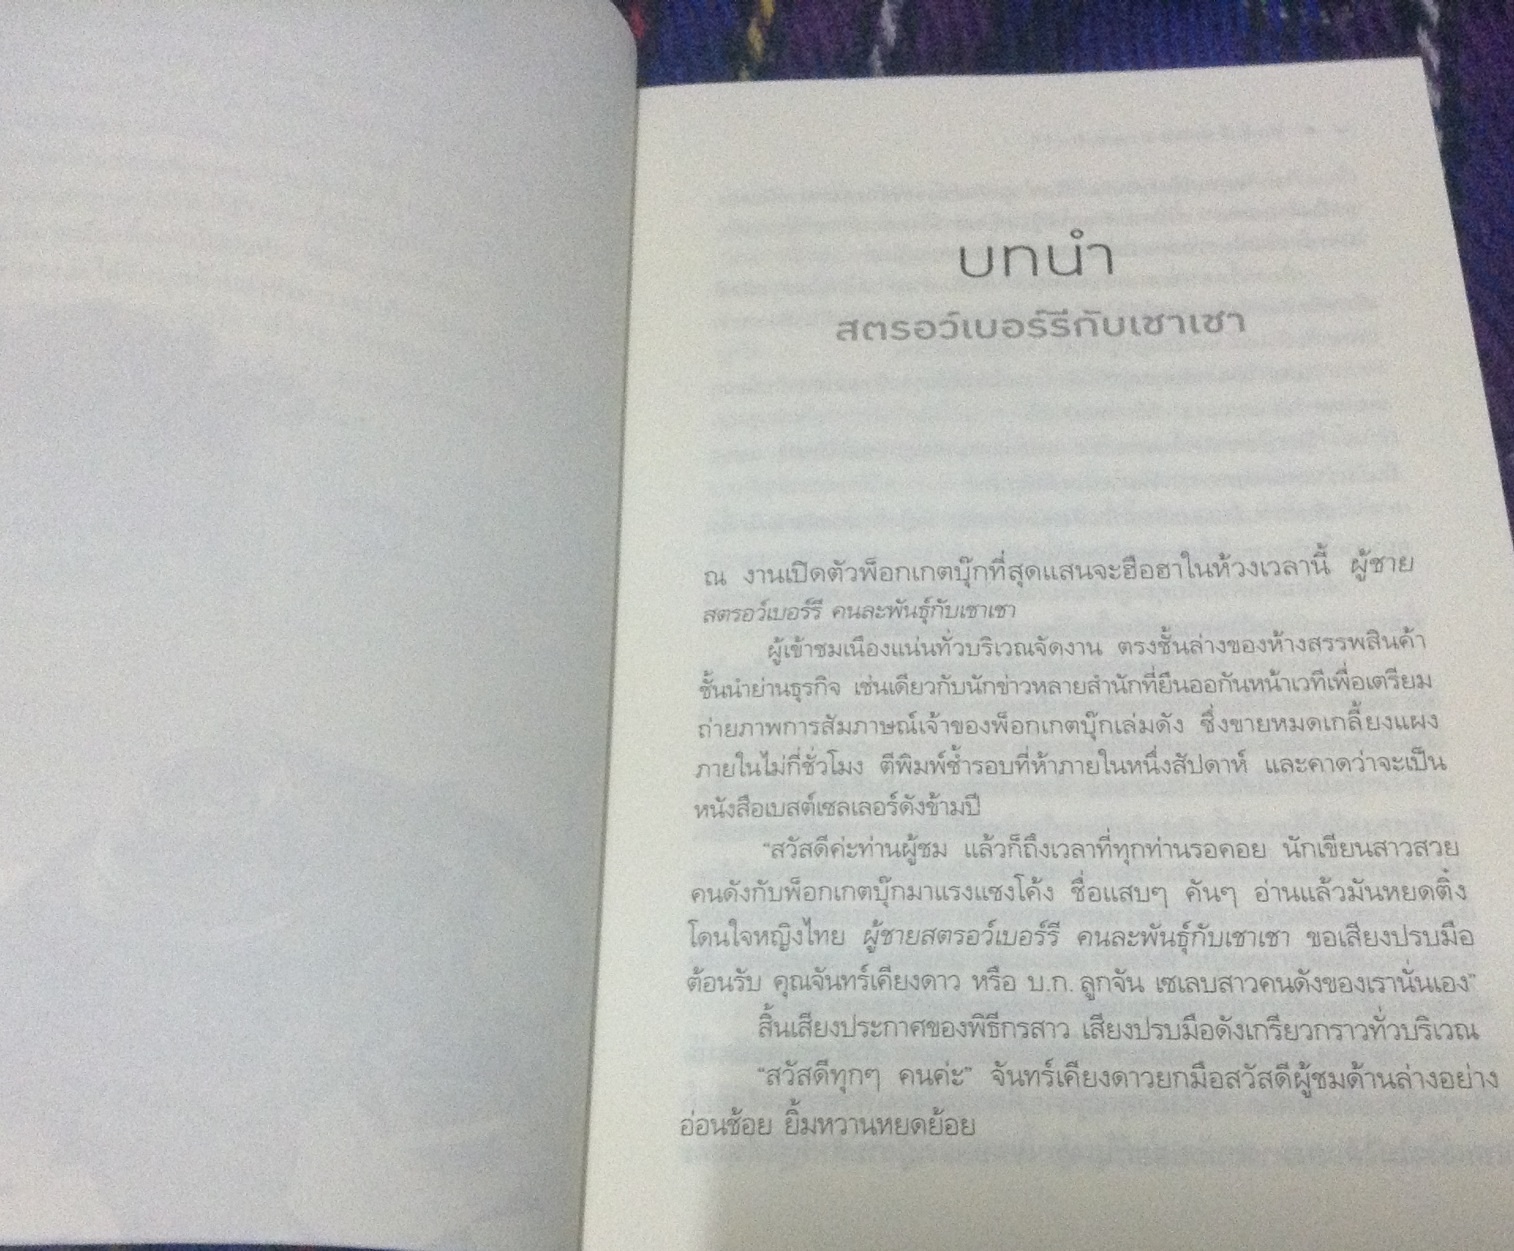 บทนำ
สตรอว์เบอร์รีกับเชาเชา
ณ งานเปิดตัวพ็อกเกตบุ๊กที่สุดแสนจะฮือฮาในห้วงเวลานี้ ผู้ชาย
สตรอว์เบอร์รี คนละพันธุ์กับเชาเชา
ผู้เข้าชมเนืองแน่นทั่วบริเวณจัดงาน ตรงชั้นล่างของห้างสรรพสินค้า
ชั้นนำย่านธุรกิจ เช่นเดียวกับนักข่าวหลายสำนักที่ยืนออกันหน้าเวทีเพื่อเตรียม
ถ่ายภาพการสัมภาษณ์เจ้าของพ็อกเกตบุ๊กเล่มดัง ซึ่งขายหมดเกลี้ยงแผง
ภายในไม่กี่ชั่วโมง ตีพิมพ์ซ้ำรอบที่ห้าภายในหนึ่งสัปดาห์ และคาดว่าจะเป็น
หนังสือเบสต์เซลเลอร์ดังข้ามปี
“สวัสดีค่ะท่านผู้ชม แล้วก็ถึงเวลาที่ทุกท่านรอคอย นักเขียนสาวสวย
คนดังกับพ็อกเกตบุ๊กมาแรงแซงโค้ง ชื่อแสบๆ คันๆ อ่านแล้วมันหยดติ๋ง
โดนใจหญิงไทย ผู้ชายสตรอว์เบอร์รี คนละพันธุ์กับเชาเชา ขอเสียงปรบมือ
ต้อนรับ คุณจันทร์เคียงดาว หรือ บ.ก. ลูกจัน เซเลบสาวคนดังของเรานั่นเอง”
สิ้นเสียงประกาศของพิธีกรสาว เสียงปรบมือดังเกรียวกราวทั่วบริเวณ
“สวัสดีทุกๆ คนค่ะ” จันทร์เคียงดาวยกมือสวัสดีผู้ชมด้านล่างอย่าง
อ่อนช้อย ยิ้มหวานหยดย้อย